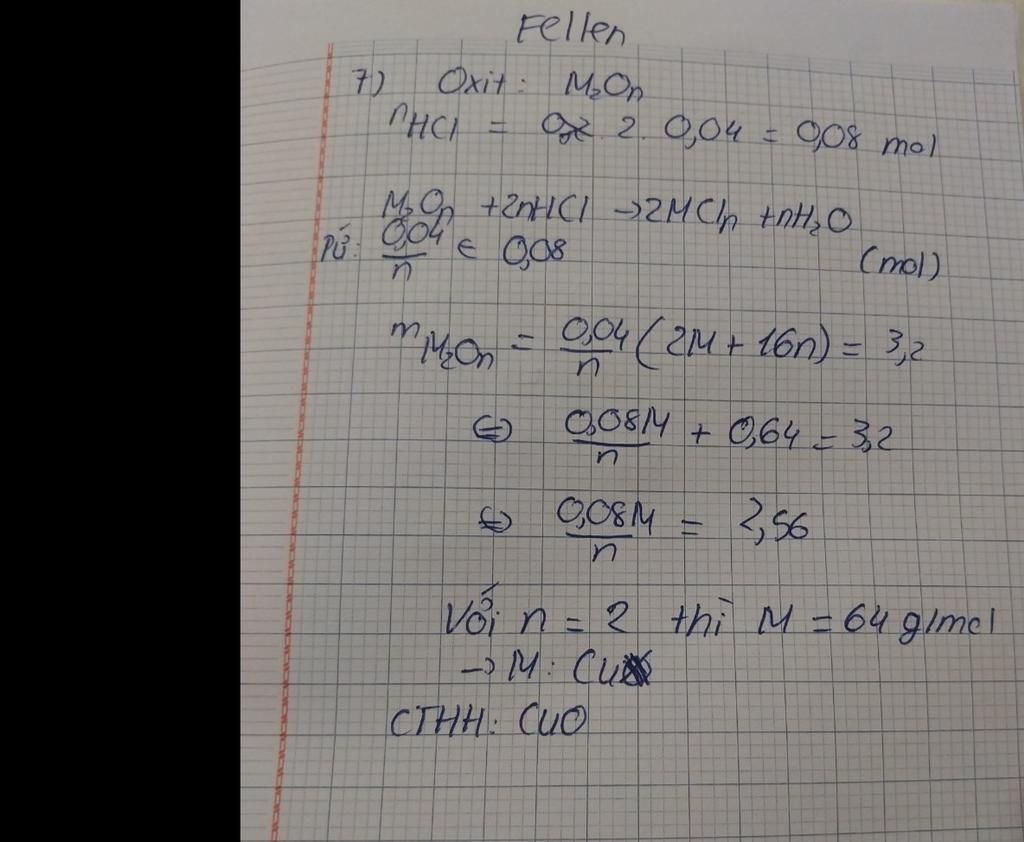 Fellen
7) Oxit: M₂Oₙ
nHCl = 2. 0,04 = 0,08 mol
M₂Oₙ + 2nHCl → 2MClₙ + nH₂O
Pứ: 0,04/n ← 0,08 (mol)
mM₂Oₙ = 0,04/n (2M + 16n) = 3,2
⇔ 0,08M/n + 0,64 = 3,2
⇔ 0,08M/n = 2,56
Với n = 2 thì M = 64 g/mol
→ M: Cu
CTHH: CuO